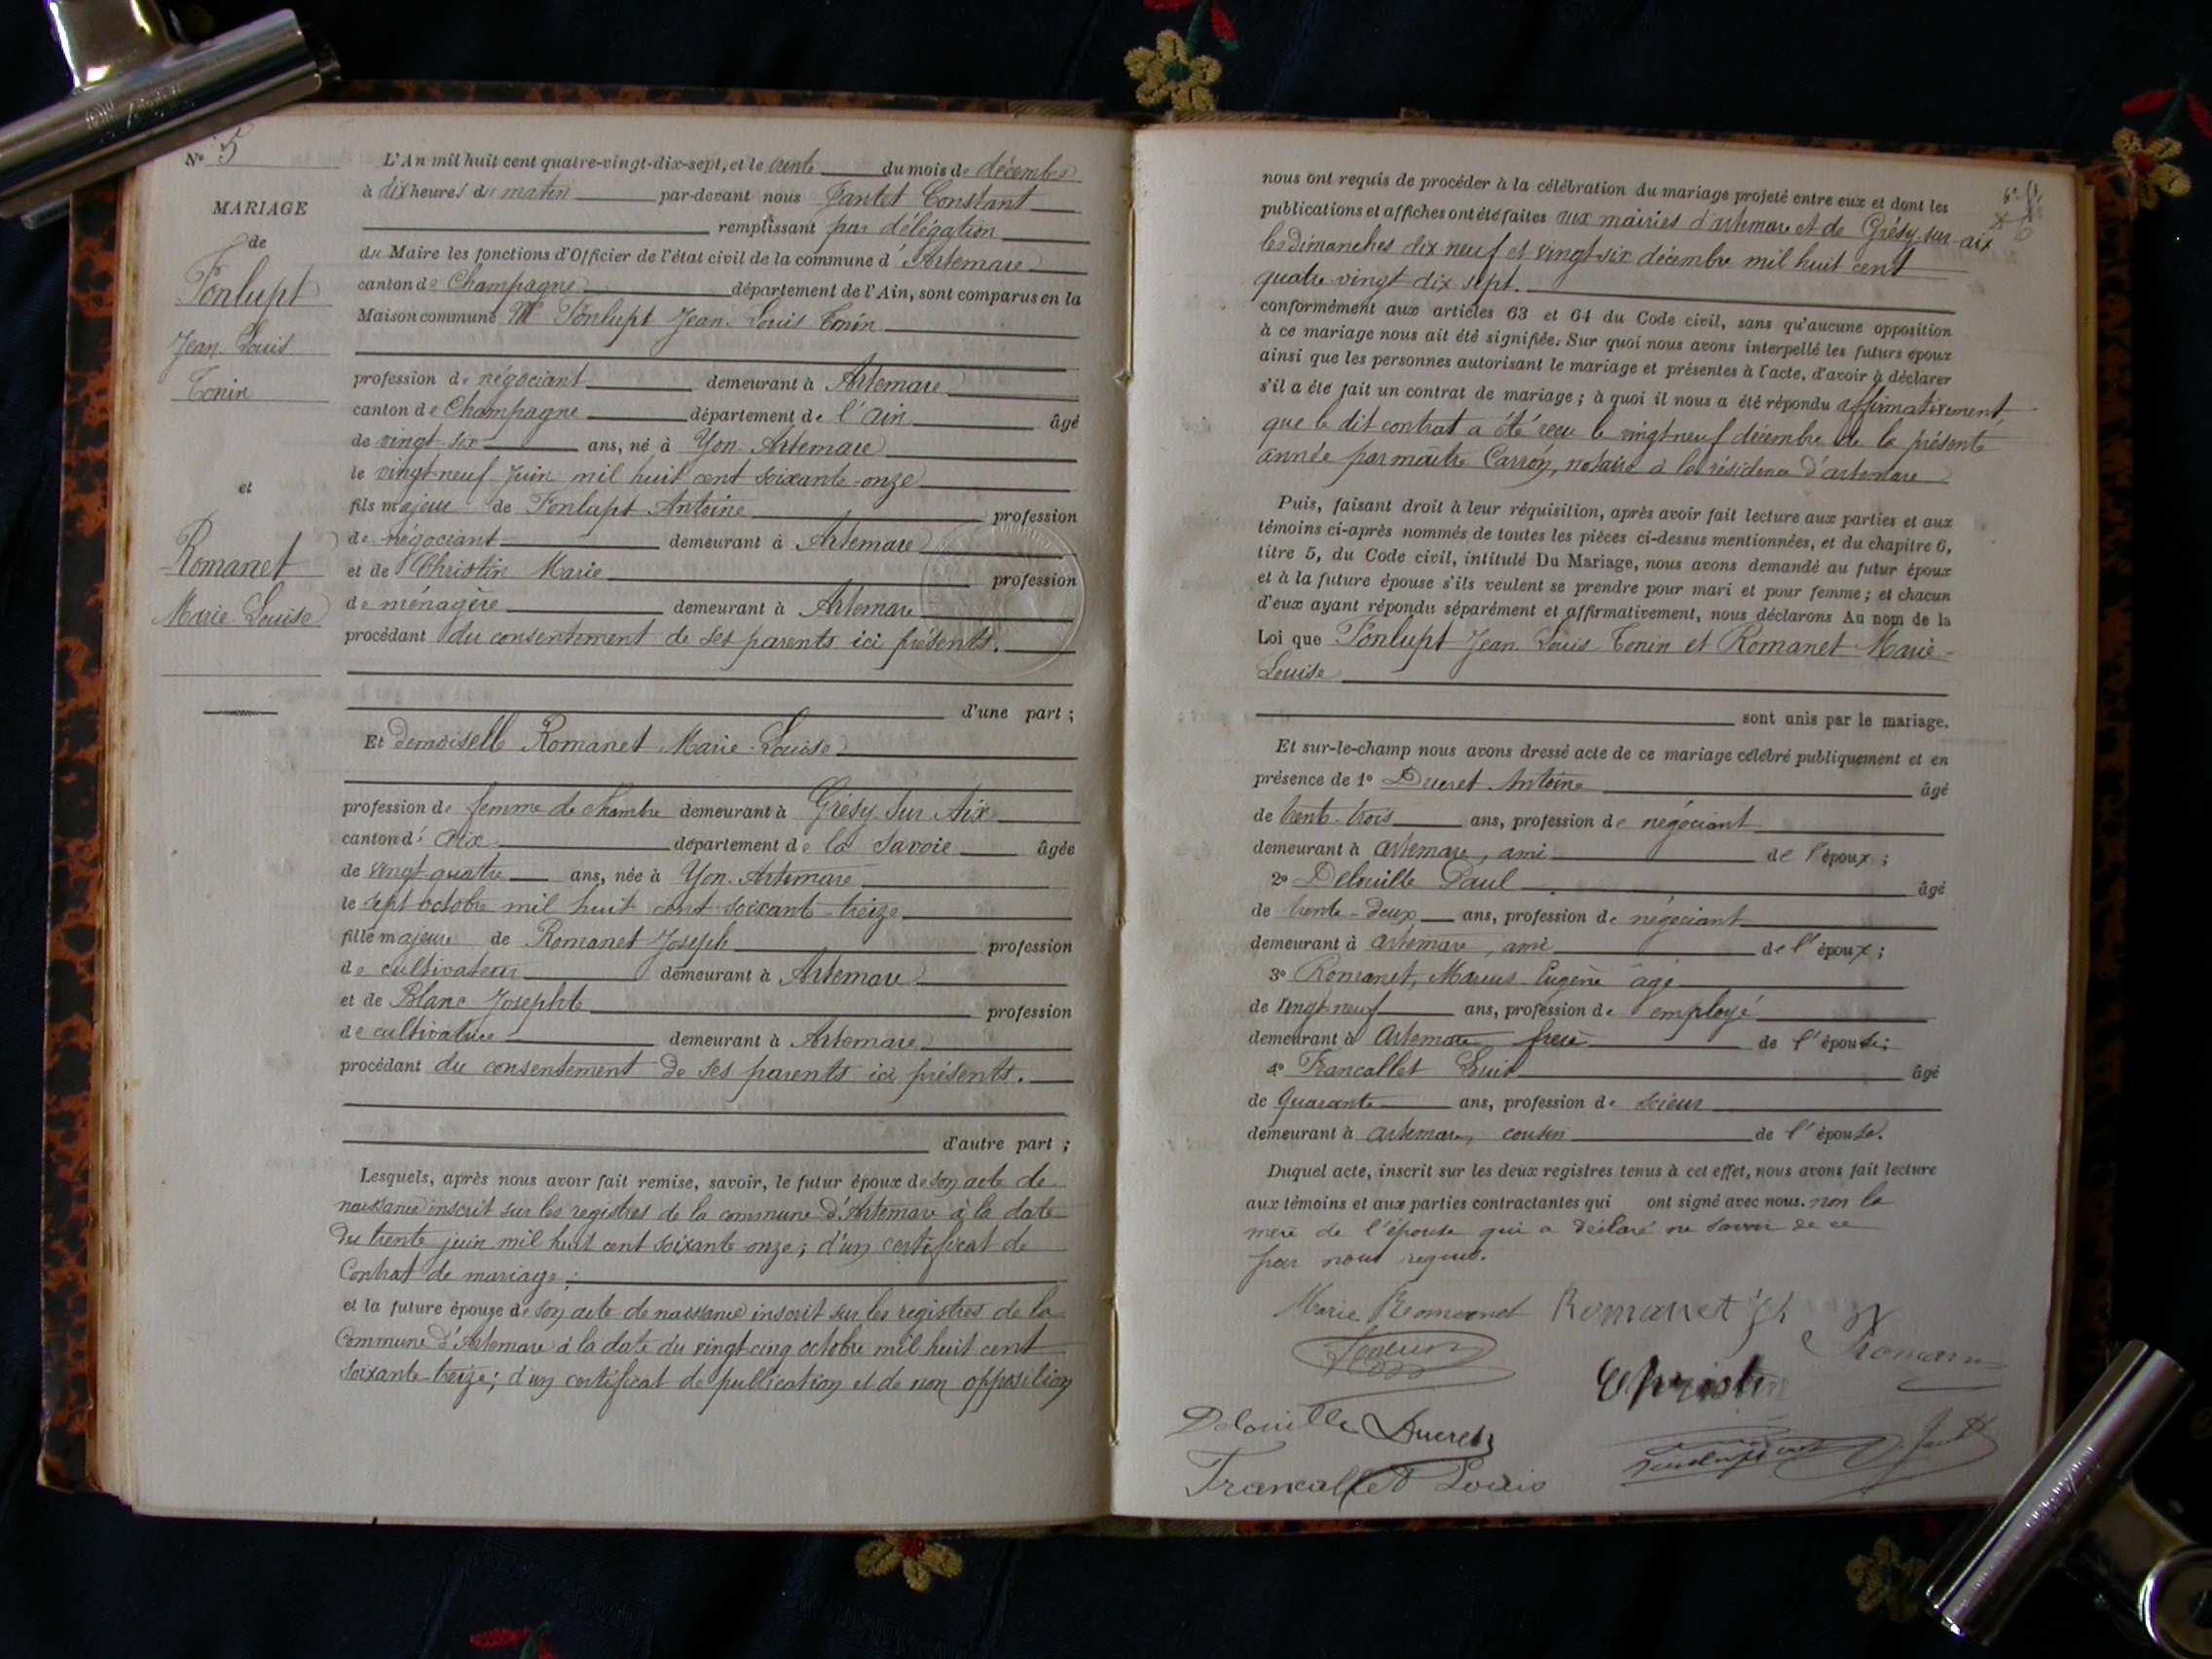 N° 5
MARIAGE
de
Fonlupt
Jean-Louis
Tonin
et
Romanet
Marie-Louise
L'An mil huit cent quatre-vingt-dix-sept, et le trente du mois de décembre
à dix heures du matin par-devant nous Jantet Constant
remplissant par délégation
du Maire les fonctions d'Officier de l'état civil de la commune d'Artemare
canton de Champagne département de l'Ain, sont comparus en la
Maison commune M Fonlupt Jean-Louis Tonin
profession de négociant demeurant à Artemare
canton de Champagne département de l'ain âgé
de vingt-six ans, né à Yon-Artemare
le vingt-neuf juin mil huit cent soixante-onze
fils majeur de Fonlupt Antoine profession
de négociant demeurant à Artemare
et de Christin Marie profession
de ménagère demeurant à Artemare
procédant du consentement de ses parents ici présents.
d'une part ;
Et demoiselle Romanet Marie-Louise
profession de femme de chambre demeurant à Grésy-sur-Aix
canton d'Aix département de la Savoie âgée
de vingt-quatre ans, née à Yon-Artemare
le sept octobre mil huit cent soixante-treize
fille majeure de Romanet Joseph profession
de cultivateur demeurant à Artemare
et de Blanc Josephte profession
de cultivatrice demeurant à Artemare
procédant du consentement de ses parents ici présents.
d'autre part ;
Lesquels, après nous avoir fait remise, savoir, le futur époux de son acte de
naissance inscrit sur les registres de la commune d'Artemare à la date
du trente juin mil huit cent soixante onze ; d'un certificat de
Contrat de mariage ;
et la future épouse de son acte de naissance inscrit sur les registres de la
Commune d'Artemare à la date du vingt-cinq octobre mil huit cent
soixante-treize ; d'un certificat de publication et de non opposition
nous ont requis de procéder à la célébration du mariage projeté entre eux et dont les
publications et affiches ont été faites aux mairies d'artemare et de Grésy-sur-aix
les dimanches dix-neuf et vingt-six décembre mil huit cent
quatre-vingt-dix-sept.
conformément aux articles 63 et 64 du Code civil, sans qu'aucune opposition
à ce mariage nous ait été signifiée. Sur quoi nous avons interpellé les futurs époux
ainsi que les personnes autorisant le mariage et présentes à l'acte, d'avoir à déclarer
s'il a été fait un contrat de mariage ; à quoi il nous a été répondu affirmativement,
que le dit contrat a été reçu le vingt-neuf décembre de la présente
année par maître Carron, notaire à la résidence d'artemare
Puis, faisant droit à leur réquisition, après avoir fait lecture aux parties et aux
témoins ci-après nommés de toutes les pièces ci-dessus mentionnées, et du chapitre 6,
titre 5, du Code civil, intitulé Du Mariage, nous avons demandé au futur époux
et à la future épouse s'ils veulent se prendre pour mari et pour femme ; et chacun
d'eux ayant répondu séparément et affirmativement, nous déclarons Au nom de la
Loi que Fonlupt Jean-Louis Tonin et Romanet Marie-
Louise
sont unis par le mariage.
Et sur-le-champ nous avons dressé acte de ce mariage célébré publiquement et en
présence de 1° Ducret Antoine âgé
de trente-trois ans, profession de négociant
demeurant à artemare, ami de l'époux ;
2° Delouille Paul âgé
de trente-deux ans, profession de négociant
demeurant à artemare, ami de l'époux ;
3° Romanet, Marius-Eugène âgé
de vingt-neuf ans, profession de employé
demeurant à artemare frère de l'épouse ;
4° Francallet Louis âgé
de quarante ans, profession de scieur
demeurant à artemare, cousin de l'épouse.
Duquel acte, inscrit sur les deux registres tenus à cet effet, nous avons fait lecture
aux témoins et aux parties contractantes qui ont signé avec nous. non la
mère de l'épouse qui a déclaré ne savoir de ce
par nous requis.
Marie Romanet Romanet
Christin
Delouille Ducret
Francallet Louis